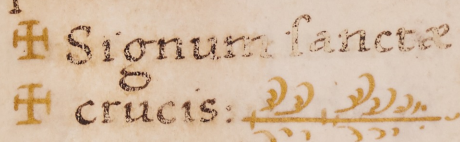 ✠ Signum ſanctæ
✠ crucis: